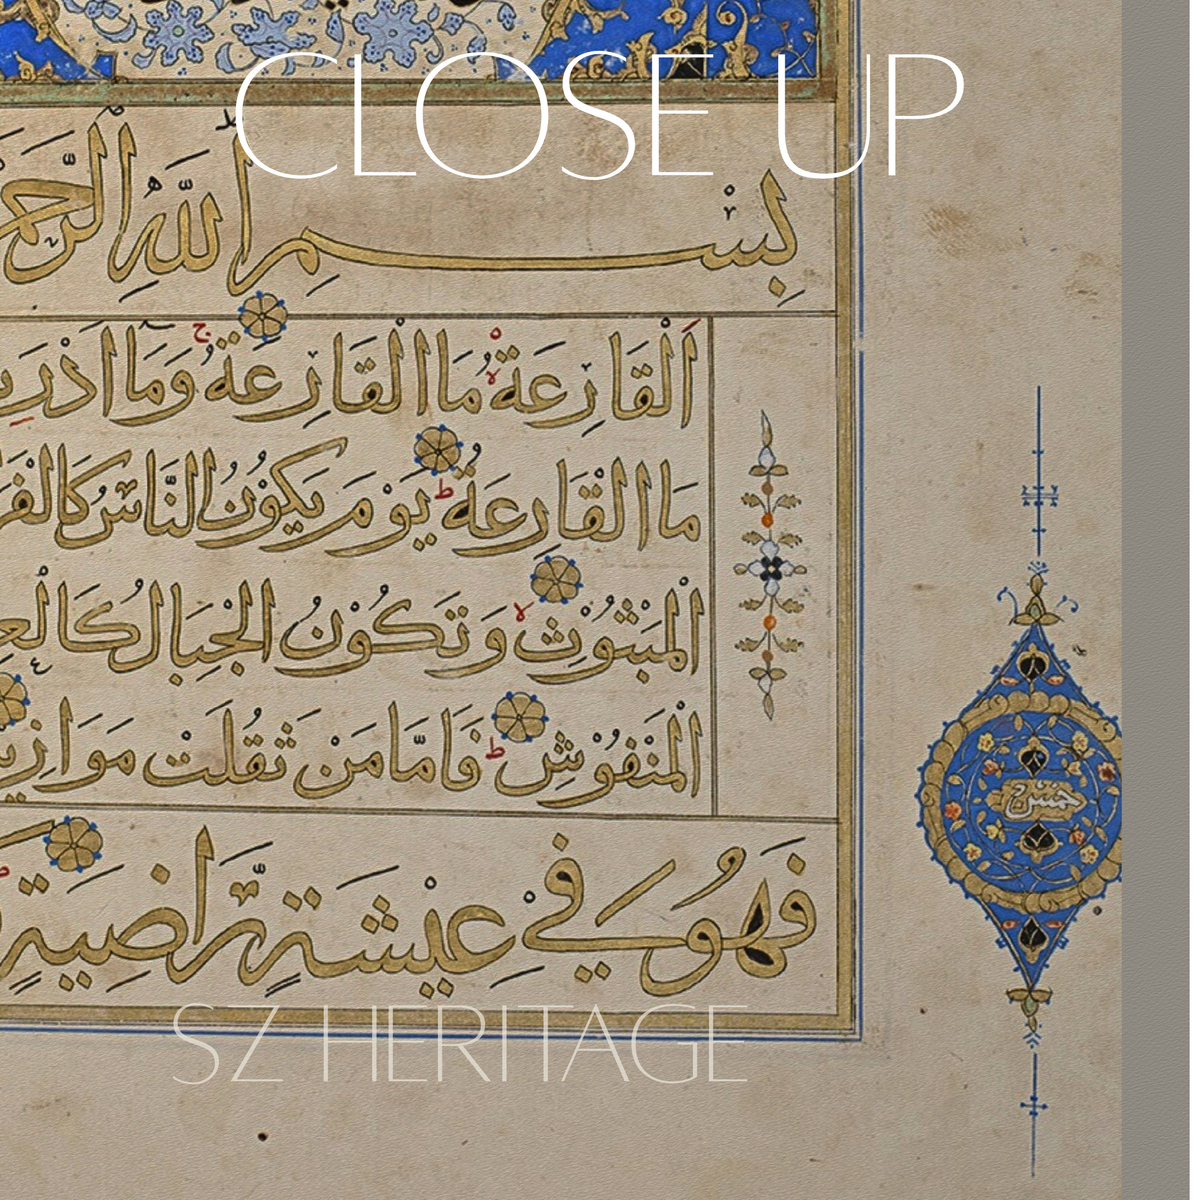 CLOSE UP
بِسْمِ اللَّهِ الرَّحْمَ
اَلْقَارِعَةُ مَا الْقَارِعَةُ وَمَا اَدْرَي
مَا الْقَارِعَةُ يَوْمَ يَكُوْنُ النَّاسُ كَالْفَرَ
الْمَبْثُوْثِ وَتَكُوْنُ الْجِبَالُ كَالْعِ
الْمَنْفُوْشِ فَاَمَّا مَنْ ثَقُلَتْ مَوَازِي
فَهُوَ فِي عِيْشَةٍ رَّاضِيَةٍ
SZ HERITAGE